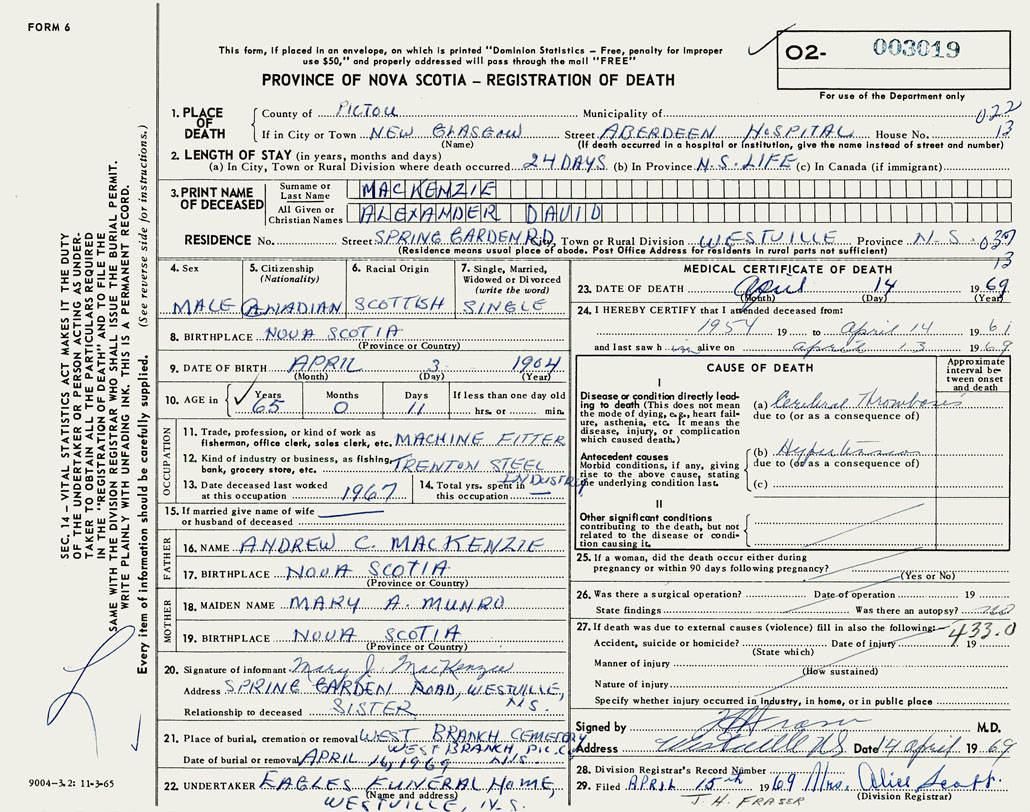 FORM 6
This form, if placed in an envelope, on which is printed "Dominion Statistics – Free, penalty for improper
use $50," and properly addressed will pass through the mail "FREE"
PROVINCE OF NOVA SCOTIA – REGISTRATION OF DEATH
O2- 003019
For use of the Department only
1. PLACE OF DEATH
County of PICTOU Municipality of 022
If in City or Town NEW GLASGOW Street ABERDEEN HOSPITAL House No. 13
(Name) (If death occurred in a hospital or institution, give the name instead of street and number)
2. LENGTH OF STAY (in years, months and days)
(a) In City, Town or Rural Division where death occurred 24 DAYS (b) In Province N.S. LIFE (c) In Canada (if immigrant)
3. PRINT NAME OF DECEASED
Surname or Last Name MACKENZIE
All Given or Christian Names ALEXANDER DAVID
RESIDENCE No. Street SPRING GARDEN RD. City, Town or Rural Division WESTVILLE Province N.S. 037
(Residence means place of abode. Post Office Address for residents in rural parts not sufficient) 13
4. Sex 5. Citizenship (Nationality) 6. Racial Origin 7. Single, Married, Widowed or Divorced (write the word)
MALE CANADIAN SCOTTISH SINGLE
8. BIRTHPLACE NOVA SCOTIA
(Province or Country)
9. DATE OF BIRTH APRIL 3 1904
(Month) (Day) (Year)
10. AGE in Years Months Days If less than one day old
65 0 11 hrs. or min.
OCCUPATION
11. Trade, profession, or kind of work as
fisherman, office clerk, sales clerk, etc. MACHINE FITTER
12. Kind of industry or business, as fishing,
bank, grocery store, etc. TRENTON STEEL INDUSTRY
13. Date deceased last worked
at this occupation 1967
14. Total yrs. spent in
this occupation —
15. If married give name of wife
or husband of deceased
FATHER
16. NAME ANDREW C. MACKENZIE
17. BIRTHPLACE NOVA SCOTIA
(Province or Country)
MOTHER
18. MAIDEN NAME MARY A. MUNRO
19. BIRTHPLACE NOVA SCOTIA
(Province or Country)
20. Signature of informant Mary J. MacKenzie
Address SPRING GARDEN ROAD, WESTVILLE, N.S.
Relationship to deceased SISTER
21. Place of burial, cremation or removal WEST BRANCH CEMETERY
WEST BRANCH, PIC. Co.
Date of burial or removal APRIL 16, 1969 N.S.
22. UNDERTAKER EAGLES FUNERAL HOME,
(Name and address)
WESTVILLE, N.S.
MEDICAL CERTIFICATE OF DEATH
23. DATE OF DEATH April 14 1969
(Month) (Day) (Year)
24. I HEREBY CERTIFY that I attended deceased from:
1954 19 to April 14 1961
and last saw him alive on april 13 1969
CAUSE OF DEATH
Approximate interval between onset and death
I
Disease or condition directly leading to death (This does not mean the mode of dying, e.g., heart failure, asthenia, etc. It means the disease, injury, or complication which caused death.)
(a) Cerebral Thrombosis
due to (or as a consequence of)
Antecedent causes
Morbid conditions, if any, giving rise to the above cause, stating the underlying condition last.
(b) Hypertension
due to (or as a consequence of)
(c)
II
Other significant conditions
contributing to the death, but not related to the disease or condition causing it.
25. If a woman, did the death occur either during
pregnancy or within 90 days following pregnancy?
(Yes or No)
26. Was there a surgical operation? Date of operation 19
State findings Was there an autopsy? no
27. If death was due to external causes (violence) fill in also the following: 433.0
Accident, suicide or homicide? Date of injury 19
(State which)
Manner of injury
(How sustained)
Nature of injury
Specify whether injury occurred in industry, in home, or in public place
Signed by M.D.
Address Westville N.S. Date 14 april 1969
28. Division Registrar's Record Number
29. Filed APRIL 15th 1969 Mrs. Alice Scott
(Division Registrar)
J. H. FRASER
SEC. 14 – VITAL STATISTICS ACT MAKES IT THE DUTY
OF THE UNDERTAKER OR PERSON ACTING AS UNDER-
TAKER TO OBTAIN ALL THE PARTICULARS REQUIRED
IN THE "REGISTRATION OF DEATH" AND TO FILE THE
SAME WITH THE DIVISION REGISTRAR WHO SHALL ISSUE THE BURIAL PERMIT.
WRITE PLAINLY WITH UNFADING INK. THIS IS A PERMANENT RECORD.
Every item of information should be carefully supplied. (See reverse side for instructions.)
9004-3.2: 11-3-65